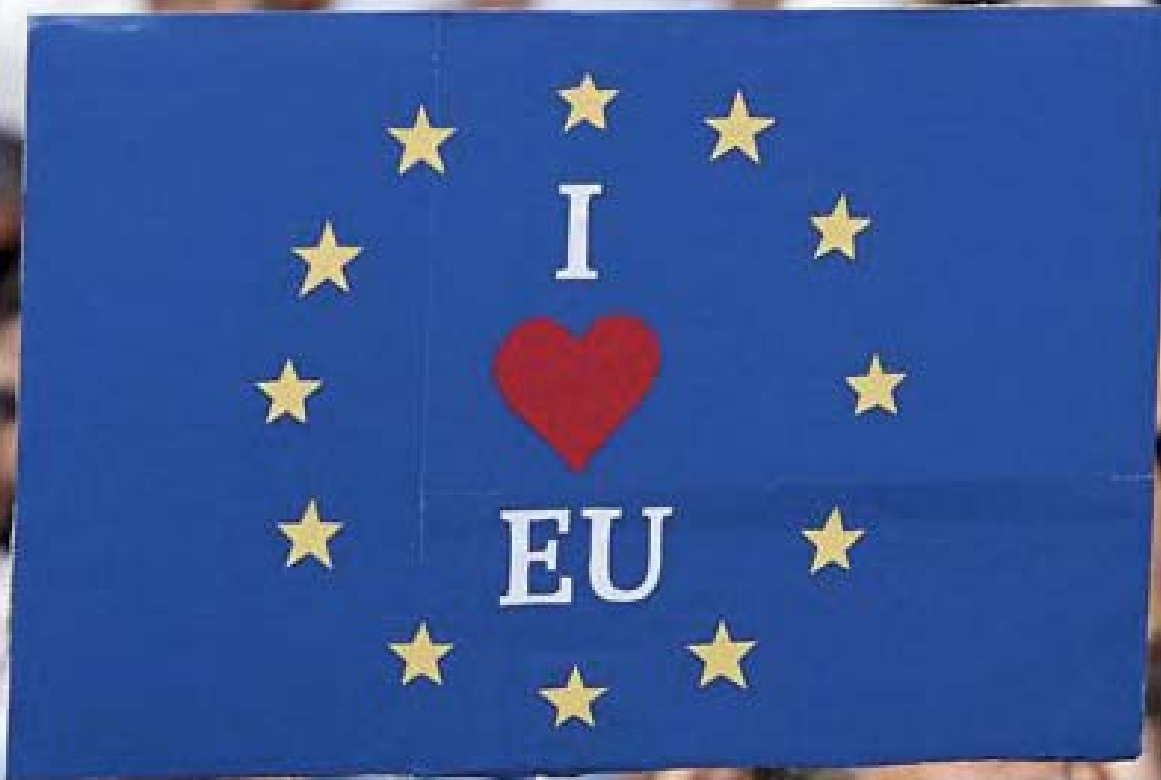 I
EU